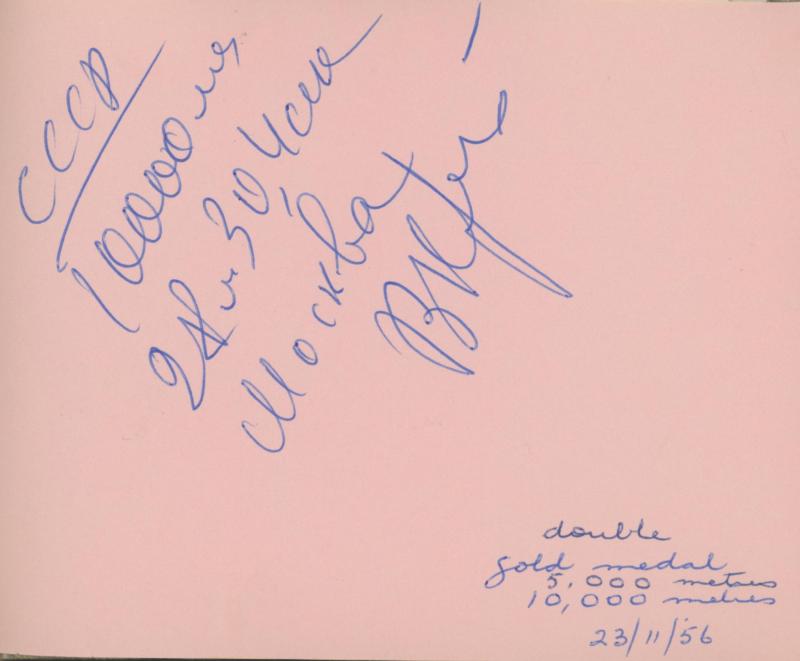 СССР
10000 м
28 м 30,4 сек
Москва
ВКуц
double
gold medal
5,000 metres
10,000 metres
23/11/56